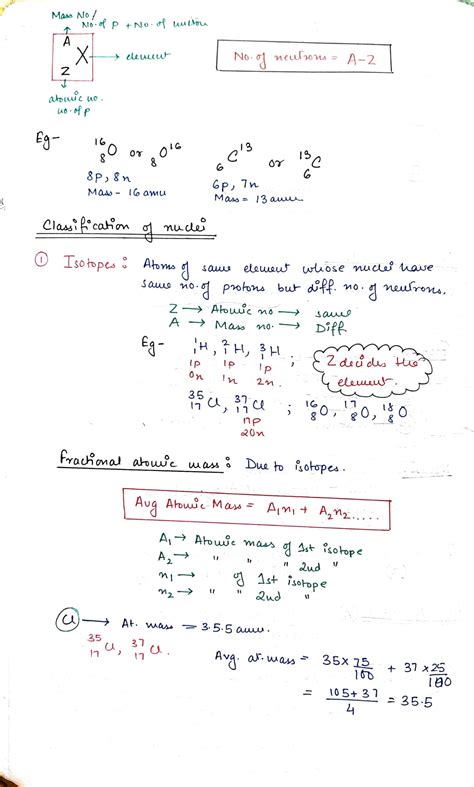 Mass No /
No. of p + No. of neutron
A
X → element
Z
atomic no.
no. of p
No. of neutrons = A-Z
Eg- ¹⁶₈O or ₈O¹⁶ ₆C¹³ or ¹³₆C
8p, 8n 6p, 7n
Mass - 16 amu Mass = 13 amu
Classification of nuclei
① Isotopes : Atoms of same element whose nuclei have
same no. of protons but diff. no. of neutrons.
Z → Atomic no → same
A → Mass no. → Diff.
Eg- ¹₁H, ²₁H, ³₁H ; Z decides the
element.
1p 1p 1p
0n 1n 2n
³⁵₁₇Cl, ³⁷₁₇Cl ; ¹⁶₈O, ¹⁷₈O, ¹⁸₈O
17p
20n
Fractional atomic mass : Due to isotopes.
Avg Atomic Mass = A₁n₁ + A₂n₂.....
A₁ → Atomic mass of 1st isotope
A₂ → " " " 2nd "
n₁ → of 1st isotope
n₂ → " " 2nd "
Cl → At. mass = 3.5.5 amu.
³⁵₁₇Cl, ³⁷₁₇Cl.
Avg. at. mass = 35×75/100 + 37×25/100
= 105+37/4 = 35.5